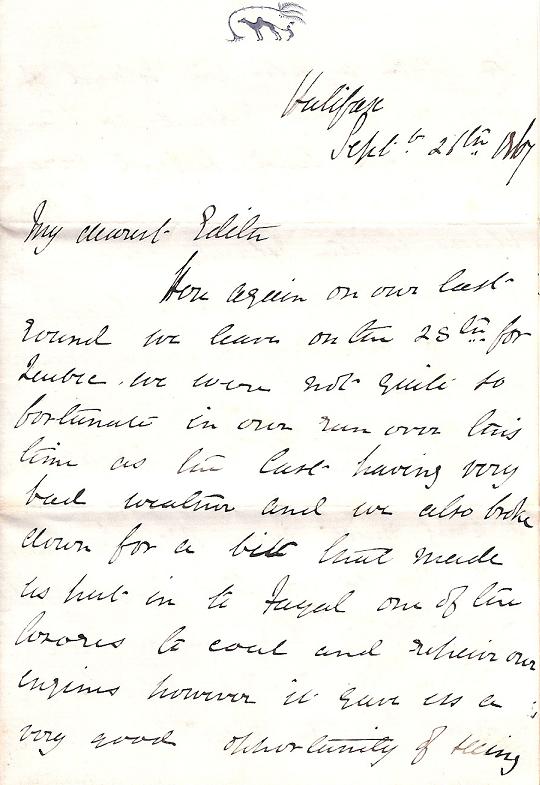 Halifax
Septbr 26th 1867
My dearest Edith
Here again on our last
round we leave on the 28th for
Quebec. we were not quite so
fortunate in our run over this
time as the last having very
bad weather and we also broke
down for a bit that made
us put in to Fayal one of the
Azores to coal and repair our
engines however it gave us a
very good opportunity of seeing